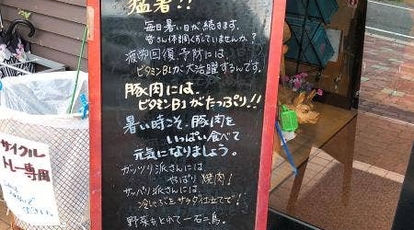 猛暑!!
毎日暑い日が続きます。
皆さん体調くずしていませんか?
疲労回復、予防には、
ビタミンB1が大活躍するんです。
豚肉には、
ビタミンB1がたっぷり!!
暑い時こそ、豚肉を
いっぱい食べて
元気になりましょう。
ガッツリ派さんには、
やっぱり焼肉!
サッパリ派さんには、
冷しゃぶをサラダ仕立てで!
野菜もとれて一石二鳥。
サイクル
トレー専用